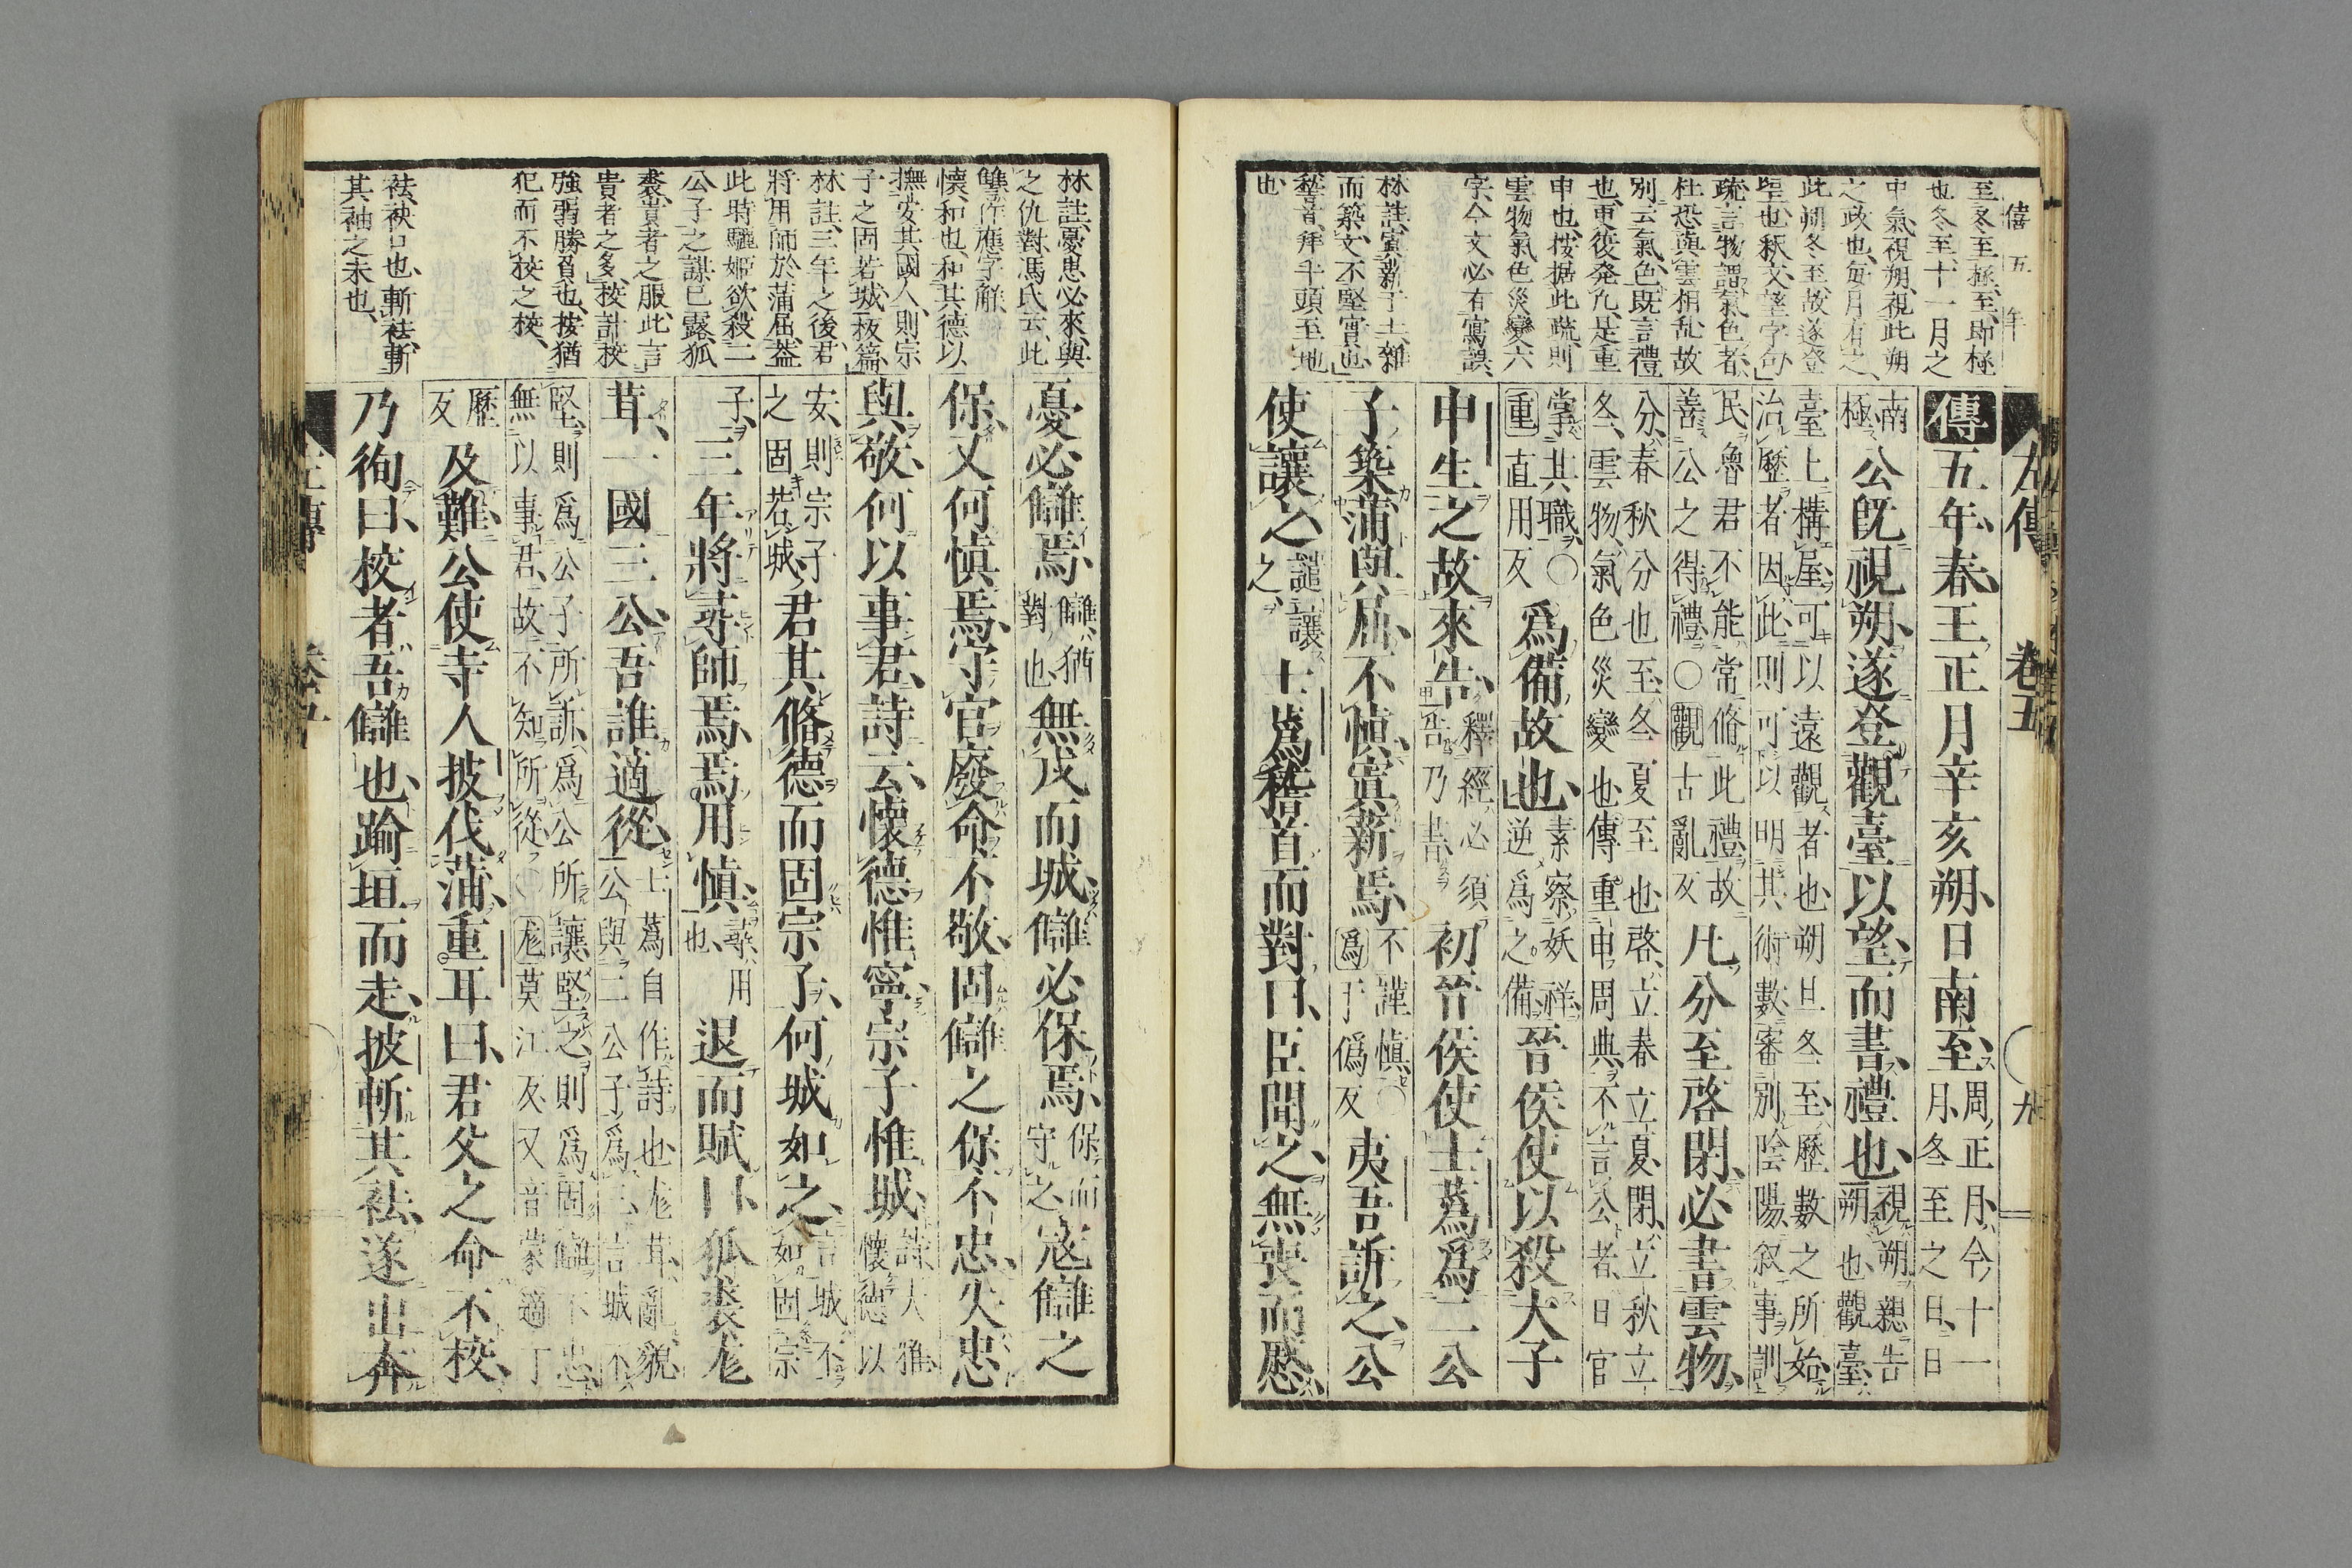 僖五年
至冬至極至即極
也冬至十一月之
中氣視朔視此朔
之政也毎月有之
此朔冬至故遂登
臺也釈文望字句
疏言物謂氣色者
杜恐與雲相乱故
別云氣色既言禮
也更復発凡是重
申也按据此疏則
雲物氣色災變六
字今文必有寫誤
林註寘薪于土雜
而築文不堅實也
稽首拜手頭至地
也
左傳 卷五 九
傳五年春王正月辛亥朔日南至周正月今十一月冬至之日日
南極公既視朔遂登觀臺以望而書禮也視朔親告朔也觀臺
臺上構屋可以遠觀者也朔旦冬至歷數之所始
治歷者因此則可以明其術數審別陰陽叙事訓
民魯君不能常脩此禮故善公之得禮○觀古亂反凡分至啓閉必書雲物
分春秋分也至冬夏至也啓立春立夏閉立秋立
冬雲物氣色災變也傳重申周典不言公者日官
掌其職○重直用反爲備故也素察妖祥逆爲之備晉侯使以殺大子
申生之故來告釋經必須告乃書初晉侯使士蔿爲二公
子築蒲與屈不慎寘薪焉不謹慎○爲于僞反夷吾訴之公
使讓之譴讓之士蔿稽首而對曰臣聞之無喪而慼
林註憂思必來與
之仇對馮氏云此
讐作應字解
懷和也和其德以
撫安其國人則宗
子之固若城板篇
林註三年之後君
將用師於蒲屈蓋
此時驪姬欲殺二
公子之謀已露狐
裘貴者之服此言
貴者之多校計校
強弱勝負也按猶
犯而不校之校
袪袂口也斬袪斬
其袖之末也
憂必讎焉讎猶對也無戎而城讎必保焉保而守之寇讎之
保又何慎焉守官廢命不敬固讎之保不忠失忠
與敬何以事君詩云懷德惟寧宗子惟城詩大雅懷德以
安則宗子之固若城君其脩德而固宗子何城如之言城不如固宗
子三年將尋師焉焉用慎尋用也退而賦曰狐裘尨
茸一國三公吾誰適從士蔿自作詩也尨茸亂貌公與二公子爲三言城不
堅則爲公子所訴爲公所讓堅之則爲固讎不忠
無以事君故不知所從○尨莫江反又音蒙適丁
歷反及難公使寺人披伐蒲重耳曰君父之命不校
乃徇曰校者吾讎也踰垣而走披斬其袪遂出奔